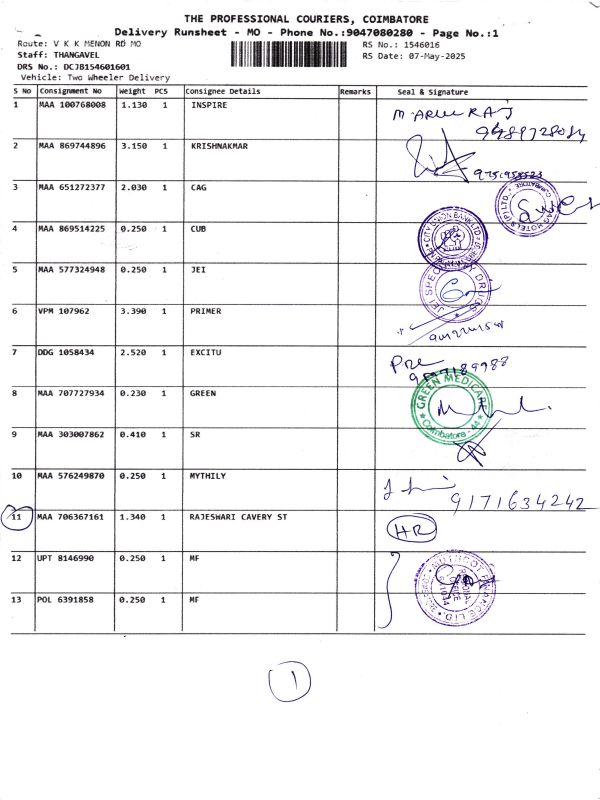 THE PROFESSIONAL COURIERS, COIMBATORE
Delivery Runsheet - MO - Phone No.:9047080280 - Page No.:1
Route: V K K MENON RD MO RS No.: 1546016
Staff: THANGAVEL RS Date: 07-May-2025
DRS No.: DCJB154601601
Vehicle: Two Wheeler Delivery
S No Consignment No Weight PCS Consignee Details Remarks Seal & Signature
1 MAA 100768008 1.130 1 INSPIRE
2 MAA 869744896 3.150 1 KRISHNAKMAR
3 MAA 651272377 2.030 1 CAG
4 MAA 869514225 0.250 1 CUB
CITY UNION BANK LTD
5 MAA 577324948 0.250 1 JEI
6 VPM 107962 3.390 1 PRIMER
7 DDG 1058434 2.520 1 EXCITU
8 MAA 707727934 0.230 1 GREEN
GREEN MEDICARE
Coimbatore - 44
9 MAA 303007862 0.410 1 SR
10 MAA 576249870 0.250 1 MYTHILY
9171634242
11 MAA 706367161 1.340 1 RAJESWARI CAVERY ST
HR
12 UPT 8146990 0.250 1 MF
13 POL 6391858 0.250 1 MF
1